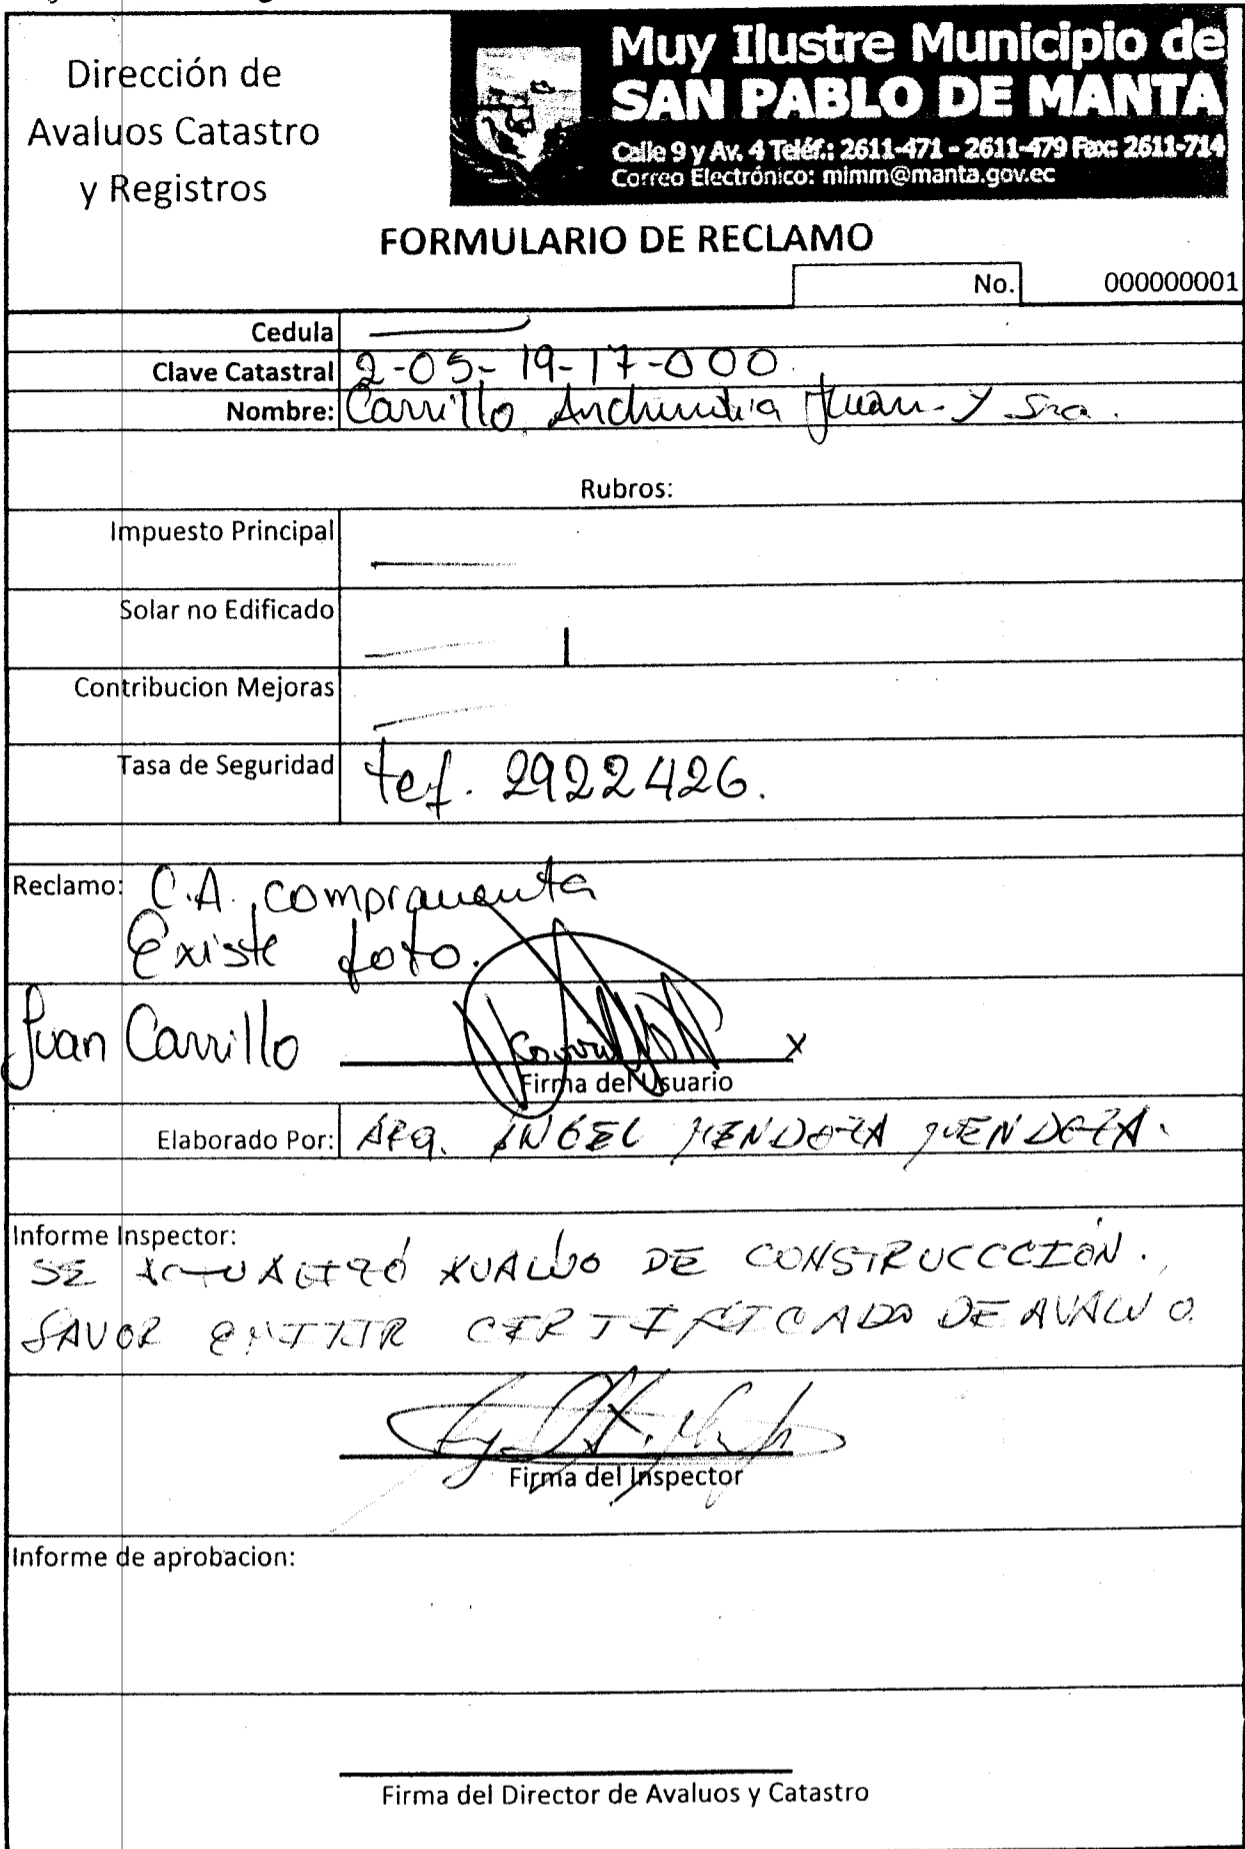 Dirección de
Avaluos Catastro
y Registros
Muy Ilustre Municipio de
SAN PABLO DE MANTA
Calle 9 y Av. 4 Teléf.: 2611-471 - 2611-479 Fax: 2611-714
Correo Electrónico: mimm@manta.gov.ec
FORMULARIO DE RECLAMO
No. 000000001
Cedula
Clave Catastral 2-05-19-17-000
Nombre: Carrillo Anchundia Juan y Sra.
Rubros:
Impuesto Principal
Solar no Edificado
Contribucion Mejoras
Tasa de Seguridad tef. 2922426.
Reclamo: C.A. compraventa
Existe foto.
Juan Carrillo x
Firma del Usuario
Elaborado Por: ARQ. ANGEL MENDOZA MENDOZA.
Informe Inspector:
SE ACTUALIZÓ AVALUO DE CONSTRUCCCION.
FAVOR EMITIR CERTIFICADO DE AVALUO.
Firma del Inspector
Informe de aprobacion:
Firma del Director de Avaluos y Catastro